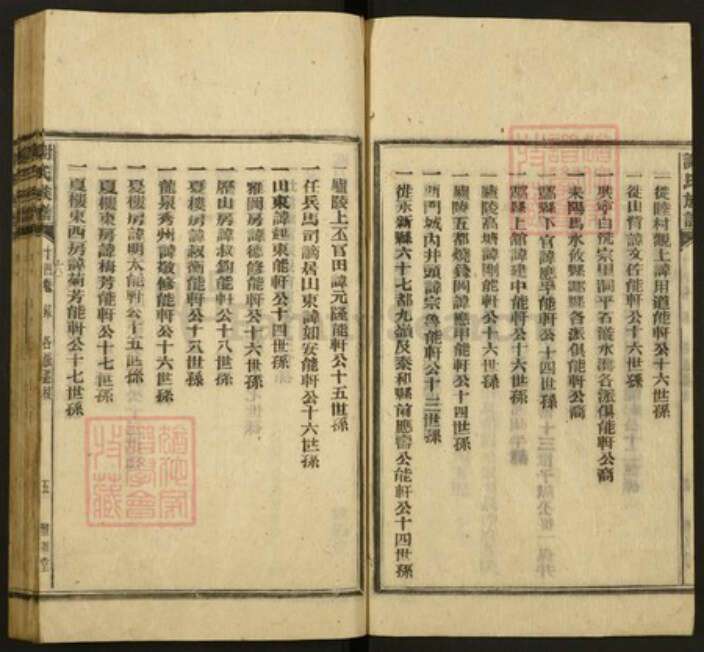 一從陸村觀上諱用道能軒公十六世孫
一從山背諱文谷能軒公十六世孫
一耒陽馬水攸縣酃縣各派俱能軒公裔
一酃縣下官諱應孚能軒公十四世孫
一酃縣上館諱建中能軒公十六世孫
一廬陵高塘諱剛能軒公十六世孫
一廬陵五都燒錢岡諱應甲能軒公十四世孫
一西門城內井頭諱宗魯能軒公十三世孫
一從永新縣六十七都九嶺及泰和縣前應富公能軒公十四世孫
一廬陵上丕官田諱元隆能軒公十五世孫
一任兵馬司謫居山東諱如安能軒公十六世孫
一山東諱廷東能軒公十四世孫
一雅岡房諱德修能軒公十六世孫
一歷山房諱叔鈞能軒公十八世孫
一夏樓房諱叔衡能軒公十八世孫
一龍泉秀州諱敬修能軒公十六世孫
一夏樓房諱明太能軒公十五世孫
一夏樓東房諱梅芳能軒公十七世孫
一夏樓東西房諱菊芳能軒公十七世孫
五